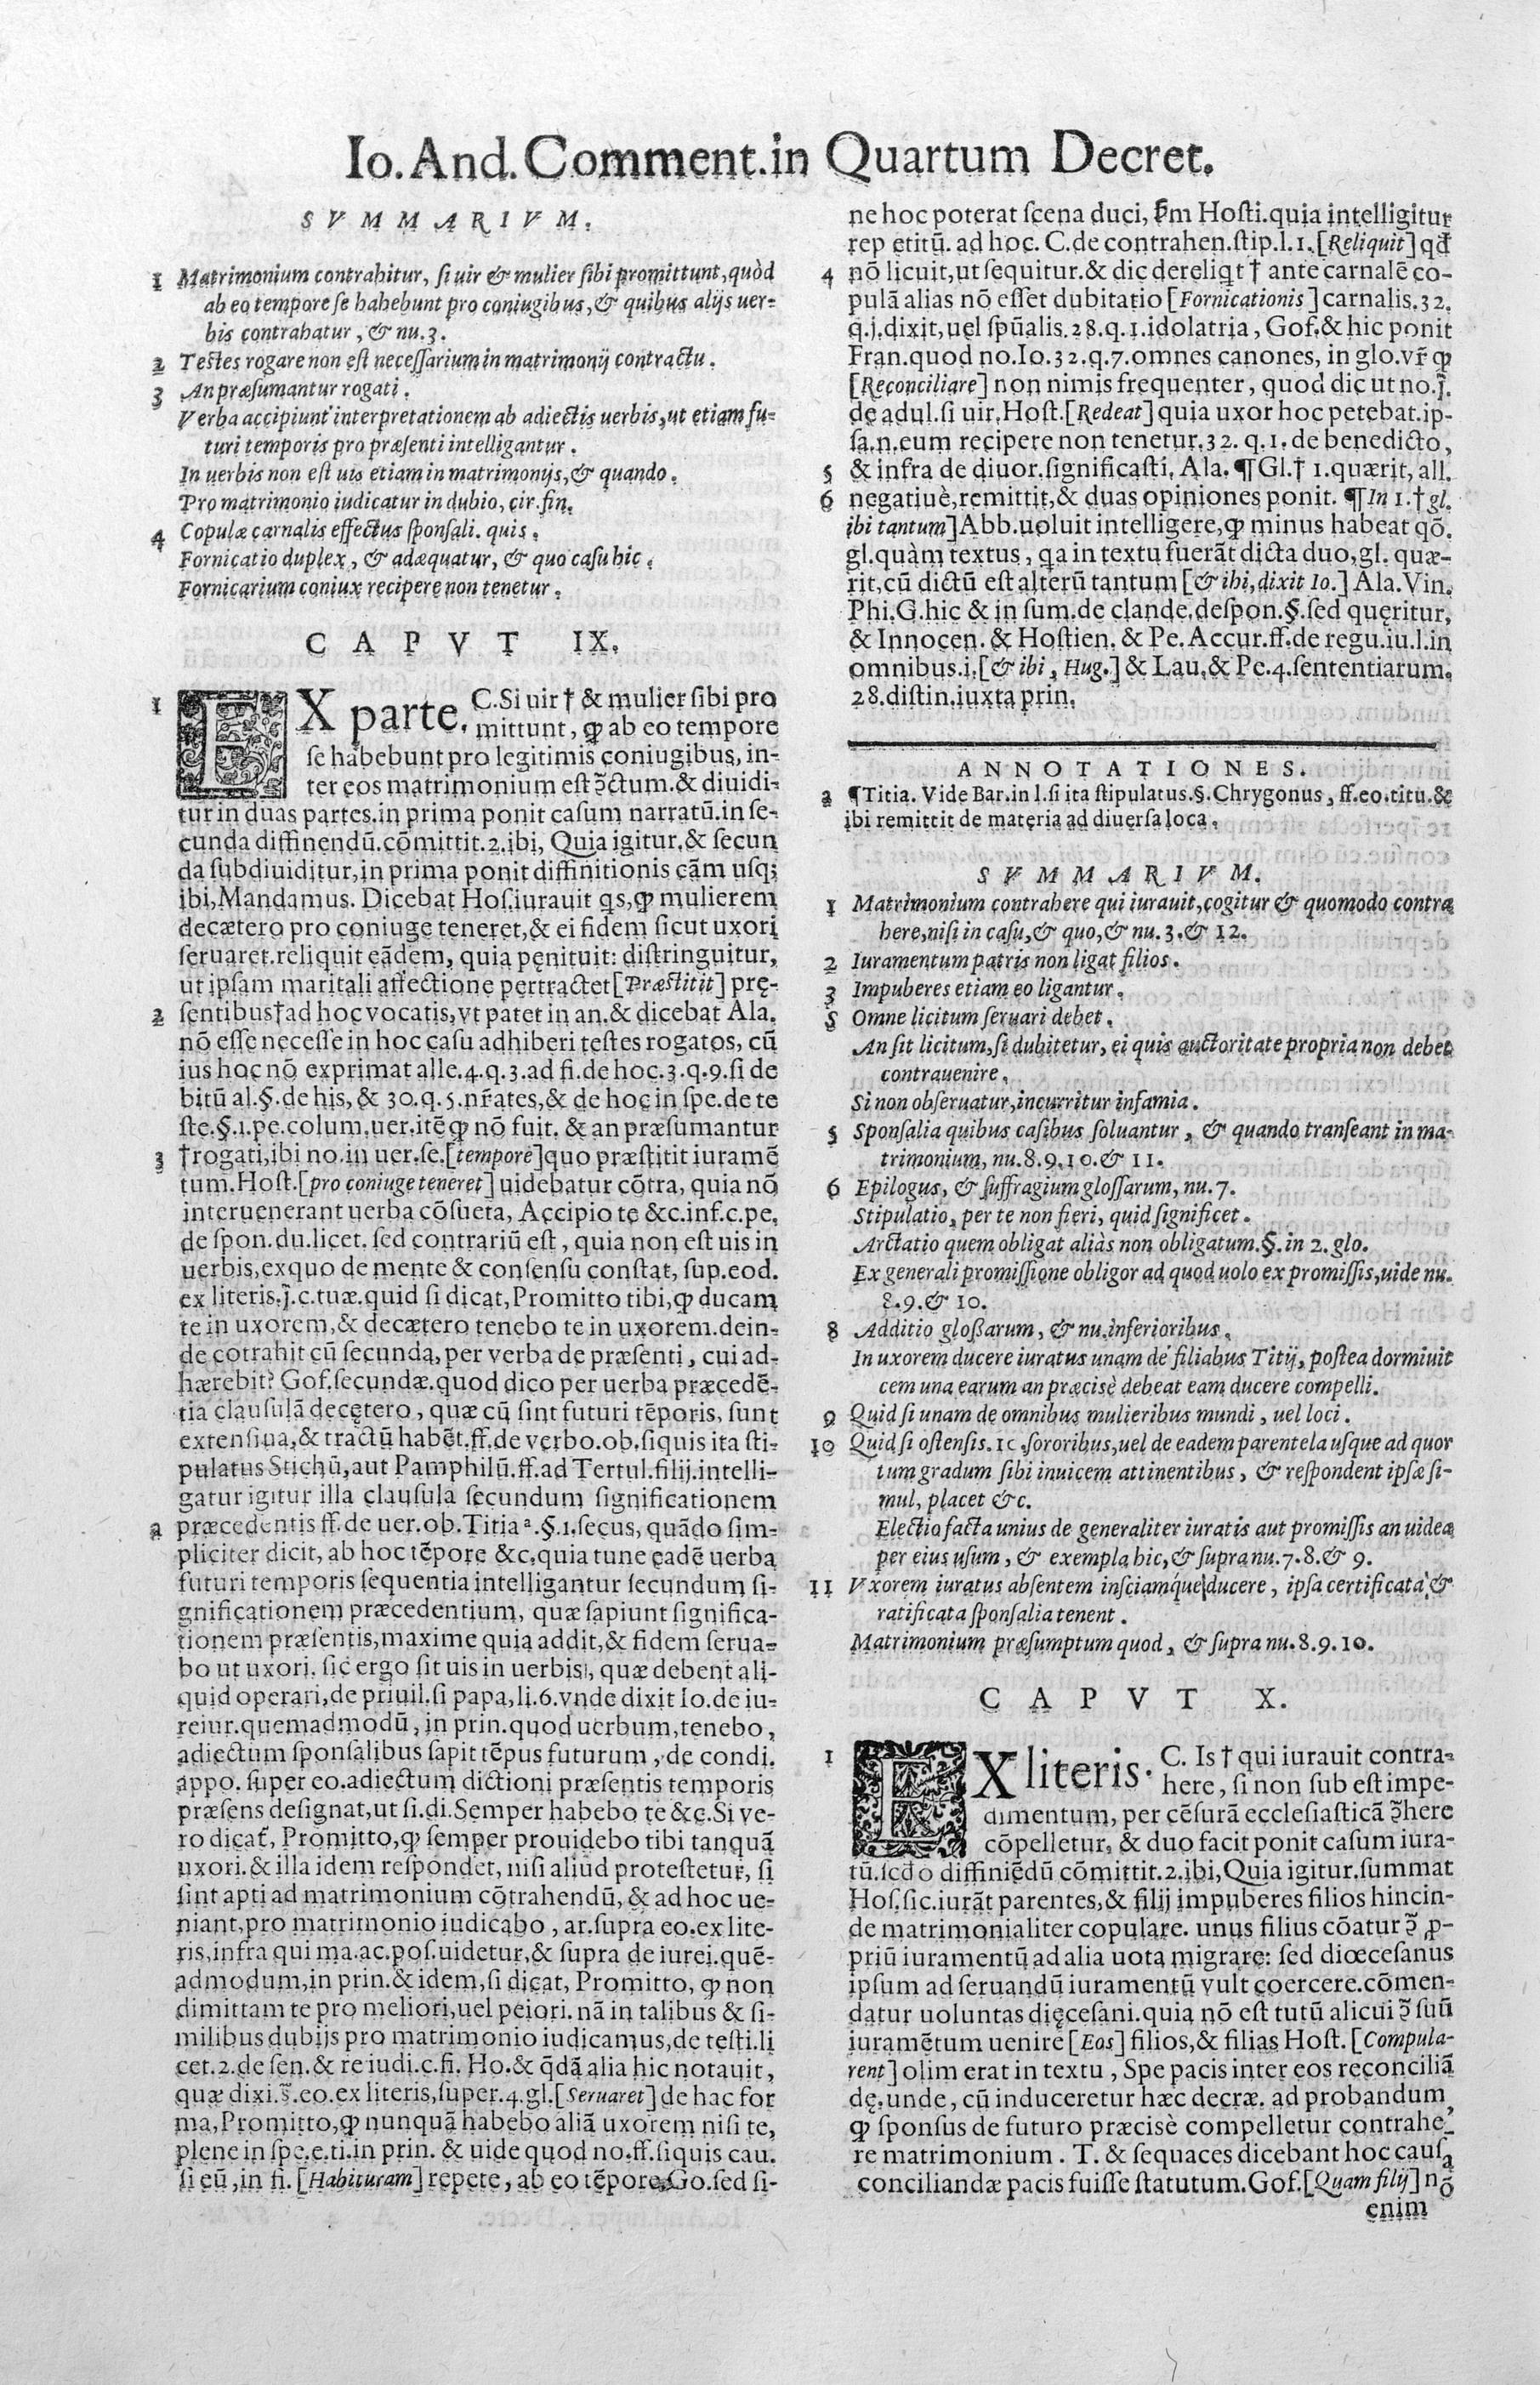 Io. And. Comment. in Quartum Decret.
SVMMARIVM.
1 Matrimonium contrahitur, si uir & mulier sibi promittunt, quòd
ab eo tempore se habebunt pro coniugibus, & quibus alijs uer-
bis contrahatur, & nu. 3.
2 Testes rogare non est necessarium in matrimonij contractu.
3 An præsumantur rogati.
Verba accipiunt interpretationem ab adiectis uerbis, ut etiam fu-
turi temporis pro præsenti intelligantur.
In uerbis non est uis etiam in matrimonijs, & quando.
Pro matrimonio iudicatur in dubio, cir. fin.
4 Copulæ carnalis effectus sponsali. quis.
Fornicatio duplex, & adæquatur, & quo casu hic.
Fornicarium coniux recipere non tenetur.
CAPVT IX.
1 EX parte. C. Si uir † & mulier sibi pro
mittunt, ꝙ ab eo tempore
se habebunt pro legitimis coniugibus, in-
ter eos matrimonium est ↄ̃ctum. & diuidi-
tur in duas partes. in prima ponit casum narratũ. in se-
cunda diffinendũ. cõmittit. 2. ibi, Quia igitur. & secun
da subdiuiditur, in prima ponit diffinitionis cãm usq;
ibi, Mandamus. Dicebat Hos. iurauit qs, ꝙ mulierem
decætero pro coniuge teneret, & ei fidem sicut uxori
seruaret. reliquit eãdem, quia pęnituit: distringuitur,
ut ipsam maritali affectione pertractet [Præstitit] prę-
2 sentibus † ad hoc vocatis, vt patet in an. & dicebat Ala.
nõ esse necesse in hoc casu adhiberi testes rogatos, cũ
ius hoc nõ exprimat alle. 4. q. 3. ad fi. de hoc. 3. q. 9. si de
bitũ al. §. de his, & 30. q. 5. nr̃ates, & de hoc in spe. de te
ste. §. 1. pe. colum. uer. itẽ ꝙ nõ fuit. & an præsumantur
3 † rogati, ibi no. in uer. se. [tempore] quo præstitit iuramẽ
tum. Host. [pro coniuge teneret] uidebatur cõtra, quia nõ
interuenerant uerba cõsueta, Accipio te &c. inf. c. pe.
de spon. du. licet. sed contrariũ est, quia non est uis in
uerbis, exquo de mente & consensu constat, sup. eod.
ex literis. j̃. c. tuæ. quid si dicat, Promitto tibi, ꝙ ducam
te in uxorem, & decætero tenebo te in uxorem. dein-
de cotrahit cũ secunda, per verba de præsenti, cui ad-
hærebit? Gof. secundæ. quod dico per uerba præcedẽ-
tia clausulã decętero, quæ cũ sint futuri tẽporis, sunt
extensiua, & tractũ habẽt. ff. de verbo. ob. siquis ita sti-
pulatus Stichũ, aut Pamphilũ. ff. ad Tertul. filij. intelli-
gatur igitur illa clausula secundum significationem
a præcedentis ff. de uer. ob. Titia a. §. 1. secus, quãdo sim-
pliciter dicit, ab hoc tẽpore &c, quia tunc eadẽ uerba
futuri temporis sequentia intelligantur secundum si-
gnificationem præcedentium, quæ sapiunt significa-
tionem præsentis, maxime quia addit, & fidem serua-
bo ut uxori. sic ergo sit uis in uerbis, quæ debent ali-
quid operari, de priuil. si papa, li. 6. vnde dixit Io. de iu-
reiur. quemadmodũ, in prin. quod uerbum, tenebo,
adiectum sponsalibus sapit tẽpus futurum, de condi.
appo. super eo. adiectum dictioni præsentis temporis
præsens designat, ut si. di. Semper habebo te &c. Si ve-
ro dicat̃, Promitto, ꝙ semper prouidebo tibi tanquã
uxori. & illa idem respondet, nisi aliud protestetur, si
sint apti ad matrimonium cõtrahendũ, & ad hoc ue-
niant, pro matrimonio iudicabo, ar. supra eo. ex lite-
ris, infra qui ma. ac. pos. uidetur, & supra de iurei. quẽ-
admodum, in prin. & idem, si dicat, Promitto, ꝙ non
dimittam te pro meliori, uel peiori. nã in talibus & si-
milibus dubijs pro matrimonio iudicamus, de testi. li
cet. 2. de sen. & re iudi. c. fi. Ho. & q̃dã alia hic notauit,
quæ dixi. s̃. eo. ex literis, super. 4. gl. [Seruaret] de hac for
ma, Promitto, ꝙ nunquã habebo aliã uxorem nisi te,
plene in spe. e. ti. in prin. & uide quod no. ff. siquis cau.
si eũ, in fi. [Habituram] repete, ab eo tẽpore. Go. sed si-
ne hoc poterat scena duci, ẜm Hosti. quia intelligitur
rep etitũ. ad hoc. C. de contrahen. stip. l. 1. [Reliquit] qđ
4 nõ licuit, ut sequitur. & dic dereliqt † ante carnalẽ co-
pulã alias nõ esset dubitatio [Fornicationis] carnalis. 32.
q. j. dixit, uel spũalis. 28. q. 1. idolatria, Gof. & hic ponit
Fran. quod no. Io. 32. q. 7. omnes canones, in glo. vr̃ ꝙ
[Reconciliare] non nimis frequenter, quod dic ut no. j̃.
de adul. si uir. Host. [Redeat] quia uxor hoc petebat. ip-
sa. n. eum recipere non tenetur. 32. q. 1. de benedicto,
5 & infra de diuor. significasti. Ala. ¶ Gl. † 1. quærit, all.
6 negatiuè, remittit, & duas opiniones ponit. ¶ In 1. † gl.
ibi tantum] Abb. uoluit intelligere, ꝙ minus habeat qõ.
gl. quàm textus, qa in textu fuerãt dicta duo, gl. quæ-
rit, cũ dictũ est alterũ tantum [& ibi, dixit Io.] Ala. Vin.
Phi. G. hic & in sum. de clande. despon. §. sed quęritur,
& Innocen. & Hostien. & Pe. Accur. ff. de regu. iu. l. in
omnibus. i. [& ibi, Hug.] & Lau. & Pe. 4. sententiarum.
28. distin. iuxta prin.
ANNOTATIONES.
a ¶ Titia. Vide Bar. in l. si ita stipulatus. §. Chrygonus, ff. eo. titu. &
ibi remittit de materia ad diuersa loca.
SVMMARIVM.
1 Matrimonium contrahere qui iurauit, cogitur & quomodo contra
here, nisi in casu, & quo, & nu. 3. & 12.
2 Iuramentum patris non ligat filios.
3 Impuberes etiam eo ligantur.
5 Omne licitum seruari debet.
An sit licitum, si dubitetur, ei quis auctoritate propria non debet
contrauenire.
Si non obseruatur, incurritur infamia.
5 Sponsalia quibus casibus soluantur, & quando transeant in ma-
trimonium, nu. 8. 9. 10. & 11.
6 Epilogus, & suffragium glossarum, nu. 7.
Stipulatio, per te non fieri, quid significet.
Arctatio quem obligat aliàs non obligatum. §. in 2. glo.
Ex generali promissione obligor ad quod uolo ex promissis, uide nu.
8. 9. & 10.
8 Additio gloßarum, & nu. inferioribus.
In uxorem ducere iuratus unam de filiabus Titij, postea dormiuit
cem una earum an præcisè debeat eam ducere compelli.
9 Quid si unam de omnibus mulieribus mundi, uel loci.
10 Quid si ostensis. 1c. sororibus, uel de eadem parentela usque ad quor
tum gradum sibi inuicem attinentibus, & respondent ipsæ si-
mul, placet &c.
Electio facta unius de generaliter iuratis aut promissis an uidea
per eius usum, & exempla hic, & supra nu. 7. 8. & 9.
11 Vxorem iuratus absentem insciamque ducere, ipsa certificata &
ratificata sponsalia tenent.
Matrimonium præsumptum quod, & supra nu. 8. 9. 10.
CAPVT X.
1 EX literis. C. Is † qui iurauit contra-
here, si non sub est impe-
dimentum, per cẽsurã ecclesiasticã ↄ̃here
cõpelletur, & duo facit ponit casum iura-
tũ. scdo diffiniẽdũ cõmittit. 2. ibi, Quia igitur. summat
Hos. sic. iurãt parentes, & filij impuberes filios hincin-
de matrimonialiter copulare. unus filius cõatur ↄ̃ ꝓ-
priũ iuramentũ ad alia uota migrare: sed diœcesanus
ipsum ad seruandũ iuramentũ vult coercere. cõmen-
datur uoluntas dięcesani. quia nõ est tutũ alicui ↄ̃ suũ
iuramẽtum uenire [Eos] filios, & filias Host. [Compula-
rent] olim erat in textu, Spe pacis inter eos reconciliã
dę. unde, cũ induceretur hæc decræ. ad probandum,
ꝙ sponsus de futuro præcisè compelletur contrahe-
re matrimonium. T. & sequaces dicebant hoc causa
conciliandæ pacis fuisse statutum. Gof. [Quam filij] nõ
enim